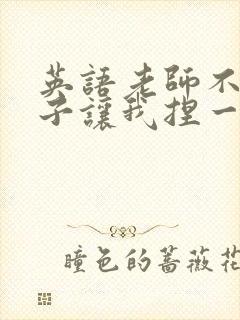 英語老師不
子讓我捏一
瞳色的薔薇花